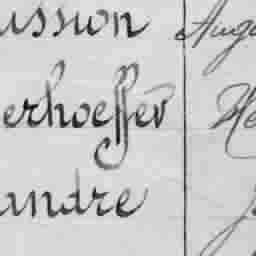 ussion Augu
erhoeffer He
andre